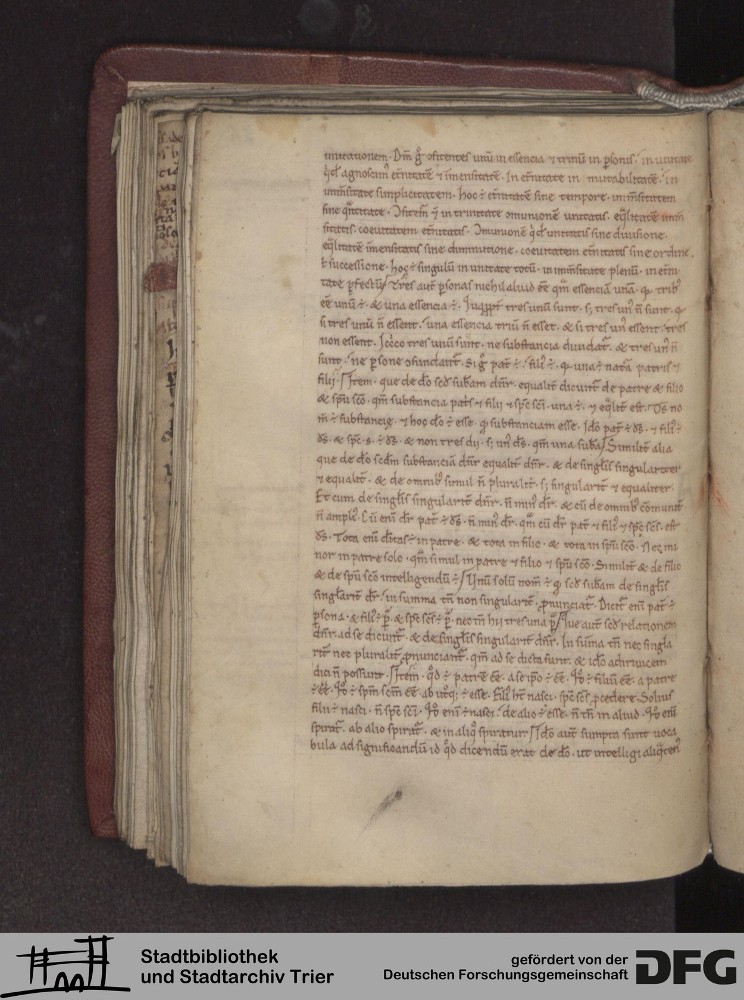 mutationem. Dm̄ g° ꝯfitentes unū in essencia ⁊ trinū in ꝑsonis. in unitate
qͥd agnoscimꝰ et̄nitatē ⁊ īmensitatē. In et̄nitate in mutabilitatē. in
īmensitate simplicitatem. hoc ē et̄nitatē sine tempore. īmensitatem
sine qͣntitate. ꝯfitem̄ in trinitate ꝯmunionē unitatis. eqͣlitatē īmen
sitatis. coeuitatem et̄nitatis. ꝯmunionē qͥd unitatis sine diuisione.
eqͣlitatē īmensitatis sine diminutione. coeuitatem et̄nitatis sine ordine.
ł successione. hoc ē singulū in unitate totū. in īmensitate plenū. in et̄ni
tate ꝑfectū. Tres aut̄ ꝑsonas nichil aliud eē qm̄ essenciā unā. qͣ tribꝰ
eē unū ē. & una essencia ē. Quapropt̄ tres unū sunt. sꝫ tres unꝰ n̄ sunt. qͣ
si tres unū n̄ essent. una essencia triū n̄ esset. & si tres unꝰ essent. tres
non essent. Iccͥco tres unū sunt. ne substancia diuidat̄. & tres unꝰ n̄
sunt. ne ꝑsone ꝯfundant̄. Si g° pat̄ ē. filiꝰ ē. qͣ una ē nat̄a patris ⁊
filii. Item. que de do sedm subam dn̄r. equalit̄ dicunt̄ de patre & filio
& spū scō. qm̄ substancia pat̄s ⁊ filii ⁊ spc sci. una ē. ⁊ eqͣlis est. Ds no
m̄ ē substancię. ⁊ hoc do ē esse. qͣ substanciam esse. Ido pat̄ ē ds. ⁊ filiꝰ ē
ds. & spc. s. ē ds. & non tres dii. sꝫ unꝰ ds. qm̄ una suba. Similit̄ alia
que de do scdm substanciā dn̄r equalit̄ dn̄r. & de singlis singulariter
⁊ equalit̄. & de omnibꝰ simul n̄ pluralit̄. sꝫ singularit̄ ⁊ equaliter.
Et cum de singlis singularit̄ dn̄r. n̄ minꝰ dr̄. & cū de omnibꝰ cōmunit̄
n̄ amplꝰ. Cū enī dr̄ pat̄ ē ds. n̄ minꝰ dr̄. qm̄ cū dr̄ pat̄ ⁊ filiꝰ ⁊ spc scs. est
ds. Tota enī ditas ē in patre. & tota in filio. & tota in spū scō. Nec mi
nor in patre solo. qm̄ simul in patre ⁊ filio ⁊ spū scō. Similit̄ & de filio
& de spū scō intelligendū ē. Unū solū nom̄ ē qd sedm subam de singlis
singlarit̄ dr̄. in summa tn̄ non singularit̄ ꝓnunciat̄. Dicit̄ enī pat̄ ē
ꝑsona. & filiꝰ ē ꝑ. & spc scs ē ꝑ. nec tn̄ hii tres una ꝑ. Que aut̄ sedm relationem
dn̄r. ad se dicunt̄. & de singlis singularit̄ dn̄r. In sum̄a tn̄ nec singla
rit̄ nec pluralit̄ ꝓnunciant̄. qm̄ ad se dicta sunt. & ido adinuicem
dici n̄ possunt. Item. qd ē patrē eē. a se ipō ē eē. hͦ ē filiū eē. a patre
ē eē. hͦ ē spm̄ scm̄ eē. ab utqͦꝫ ē esse. Filiꝰ hꝫ nasci. spc scs ꝓcedere. Soliꝰ
filii ē nasci. n̄ spc sci. hͦ enī ē nasci. de alio ē esse. n̄ tn̄ in aliud. hͦ enī
spirat̄. ab alio spirat̄. & in aliqͦ spiratur. Ido aut̄ sumpta sunt uoca
bula ad significandū id qd dicendū erat de do. ut intelligi aliqͣten
Stadtbibliothek
und Stadtarchiv Trier
gefördert von der
Deutschen Forschungsgemeinschaft
DFG